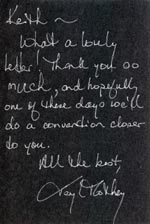 Keith ~
What a lovely
letter! Thank you so
much, and hopefully
one of these days we'll
do a convention closer
to you.
All the best,